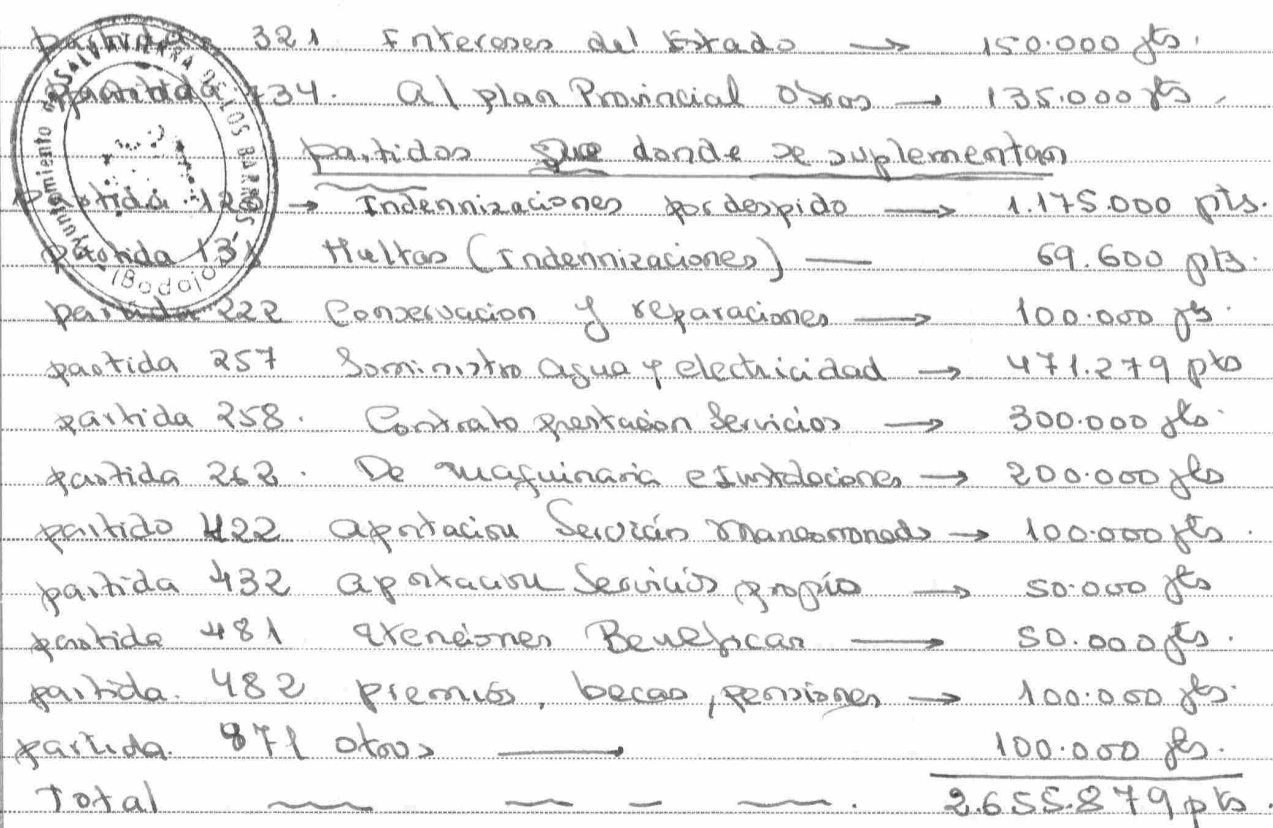 partida 321 Intereses del Estado → 150.000 pts.
partida 734. Al plan Provincial Obras → 135.000 pts.
partidas que donde se suplementan
partida → Indennizaciones por despido → 1.175.000 pts.
partida 131 Multas (Indennizaciones) — 69.600 pts.
partida 222 Conservacion y reparaciones → 100.000 pts.
partida 257 Sominis​tro agua y electricidad → 471.279 pts
partida 258. Contrato prestación Servicios → 300.000 pts.
partida 262. De maquinaria e Instalaciones → 200.000 pts
partida 422 aportacion Servicios mancomonados → 100.000 pts.
partida 432 aportacion Servicios propio → 50.000 pts
partida 481 atenciones Beneficas → 50.000 pts.
partida. 482 premios, becas, pensiones → 100.000 pts.
partida. 871 otros → 100.000 pts.
Total 2.655.879 pts.
Ayuntamiento de SALVATIERRA DE LOS BARROS
(Badajoz)